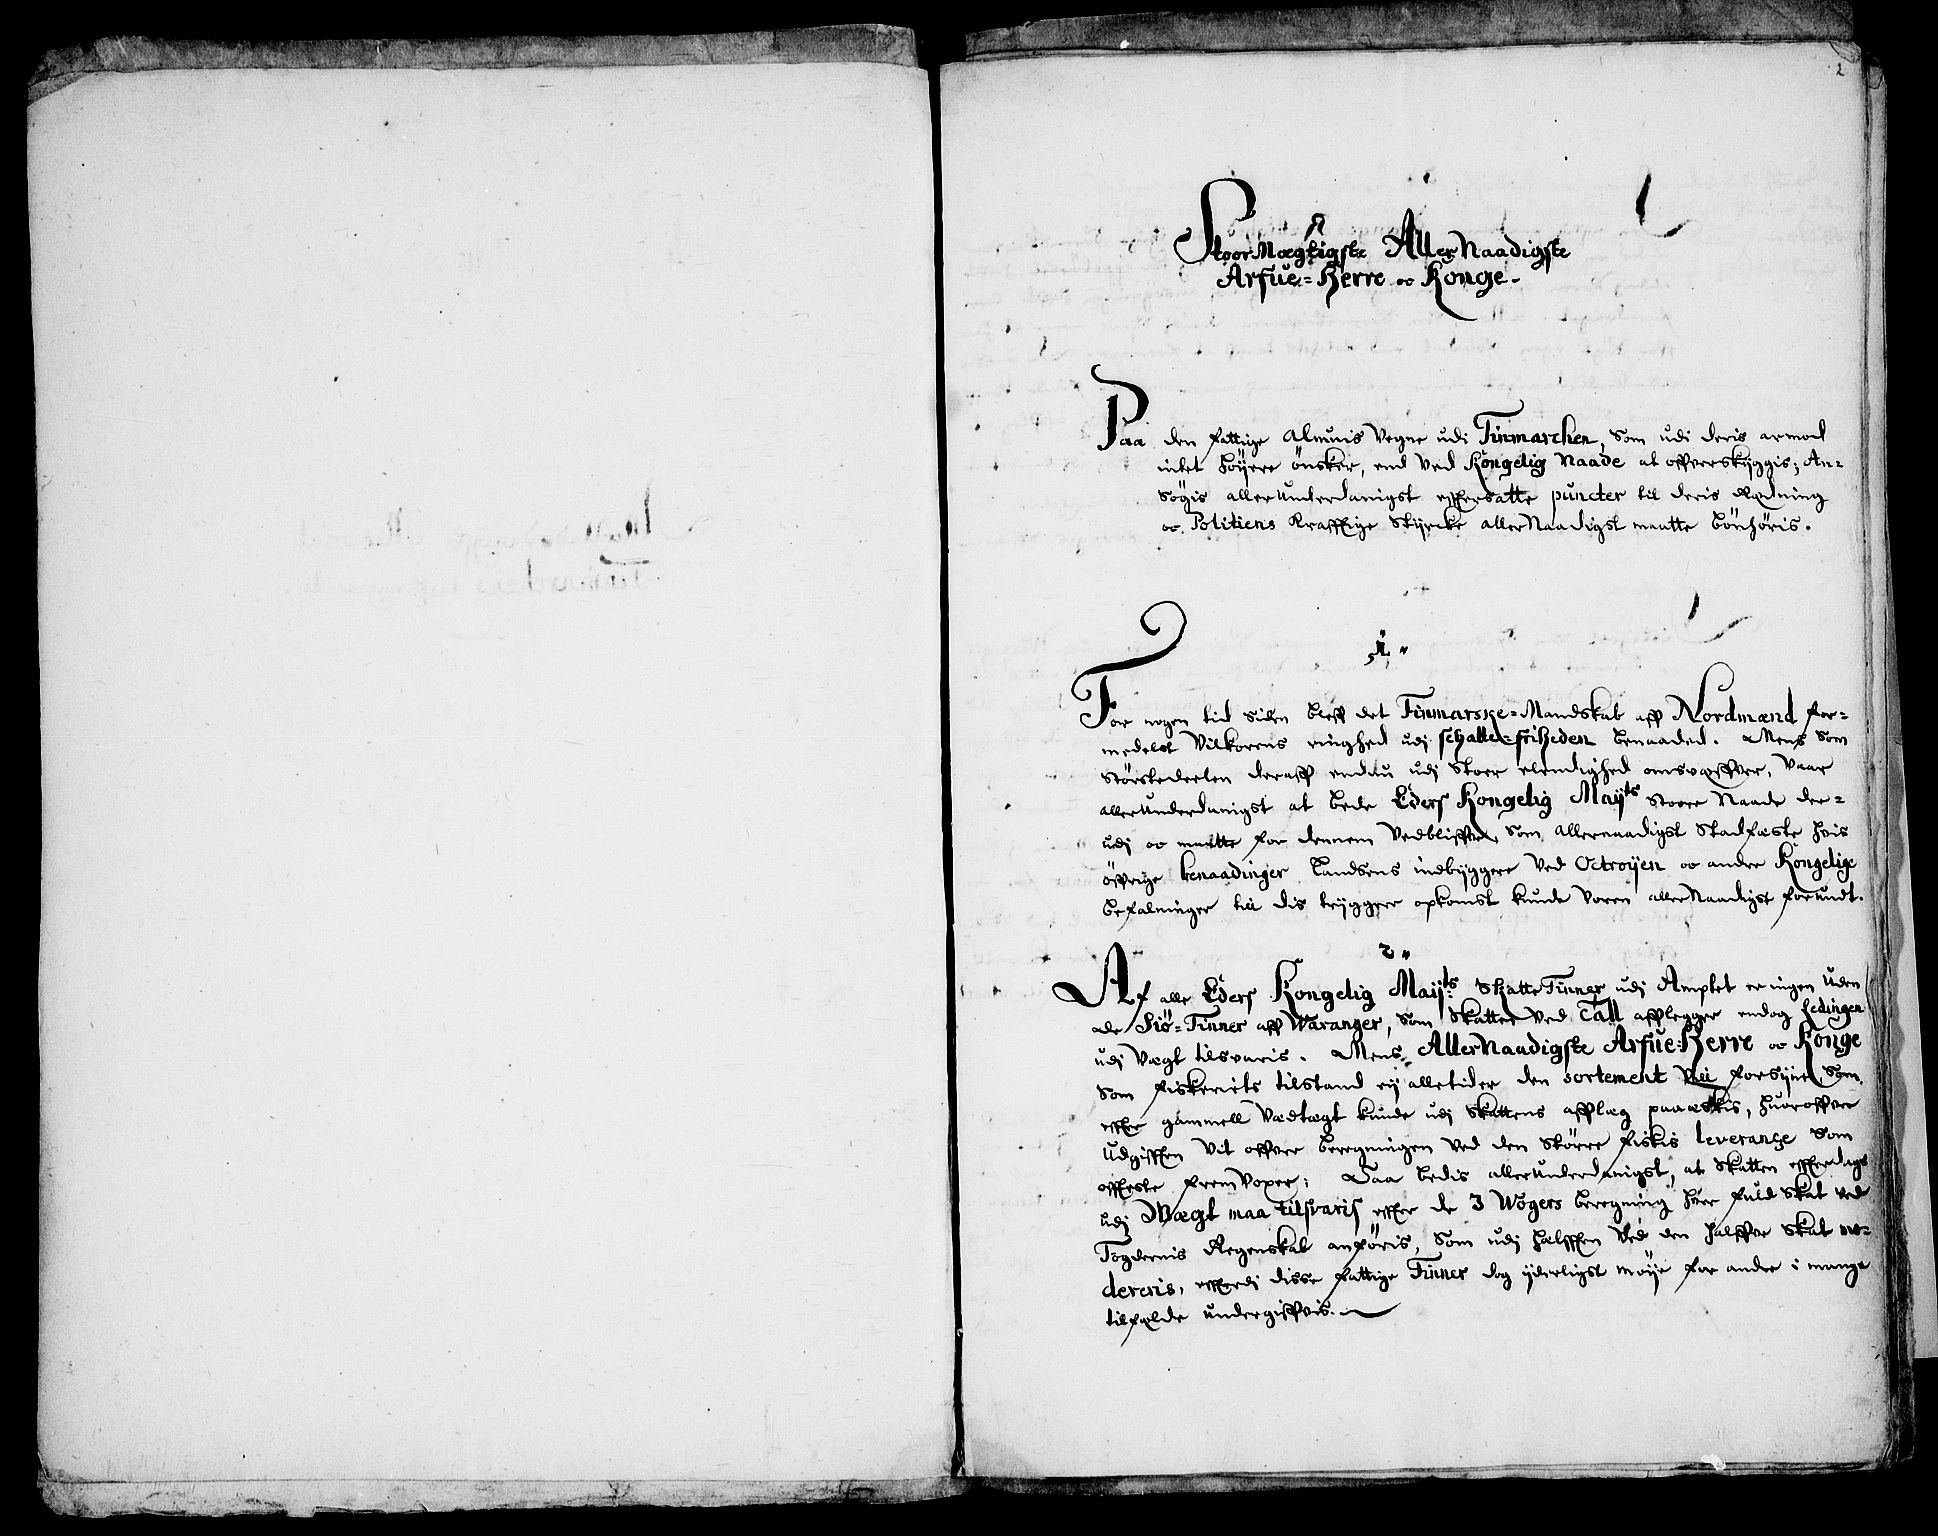 2
StoorMægtigste AllerNaadigste
Arfue-Herre oc Konge.
Paa den fattige Almuis Vegne udi Finmarchen, som udi deris armod
intet höyere önsker, end ved Kongelig Naade at offverskyggis; An-
søgis allerunderdanigst efftersatte puncter til deris Redning
oc Politiens Krafftige Styrcke allerNaadigst maatte bönhöris.
1.
For nogen tid siden bleff det Finmarske-Mandskab aff Nordmænd for-
medelst Vilkorens ringhed udj schatte-friheden benaaded. Mens som
Störstedeelen deraff endnu udj stoer elendighed omsvæffver, vaar
allerunderdanigst at bede Eders Kongelig Mayts stoere Naade der-
udj oc maatte for dennem vedbliffve, som allernaadigst stadfæste hvis
öffrige benaadinger Landsens indbyggere ved Octroyen oc andre Kongelige
befalninger till dis tryggere opkomst kunde voren allerNaadigst forundt.
2.
Af alle Eders Kongelig Mayts SkatteFinner udj Amptet er ingen uden
de Siö-Finner aff Waranger, som Skatten ved Tall afflegger endog Ledingen
udj vægt tilsvaris. Mens AllerNaadigste Arfue-Herre oc Konge
som fiskeriets tilstand ey alletider den sortement vil forsyne, som
effter gammell vedtægt kunde udj Skattens afflæg paaæskis, huoroffver
Udgifften vit offver beregningen ved den större fiskis leverance som
offteste fremvoxer; Saa bedis allerunderdanigst, at Skatten effterdags
udj Wægt maa tilsvaris effter de 3 Wogers beregning hver fuld Skat ved
Fogdernis Regenskab anföris, som udj helfften ved den halffve Skat mo-
dereris, efftterdj disse fattige Finner dog yderligst möye for andre i mange
tilfælde undergiffvis.